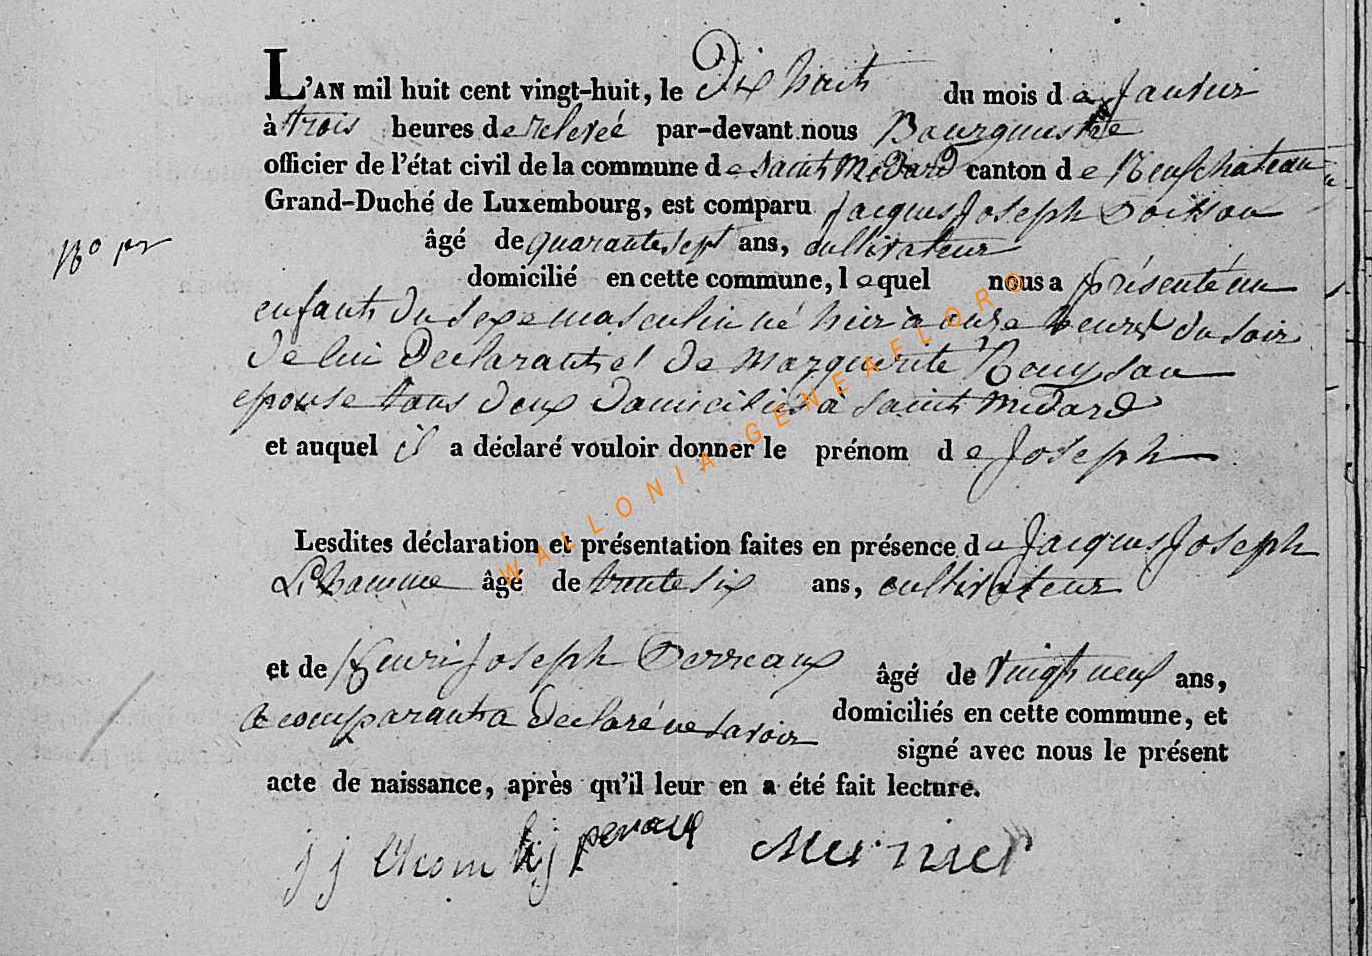 L'AN mil huit cent vingt-huit, le Dix huit du mois de Janvier
à trois heures de relevée par-devant nous Bourguemestre
officier de l'état civil de la commune de Saint Medard canton de Neufchateau
Grand-Duché de Luxembourg, est comparu Jacques Joseph
âgé de quarante sept ans, cultivateur
N° pr
domicilié en cette commune, lequel nous a présenté un
enfant du sexe masculin né hier à onze heures du soir
de lui Declarant et de Marguerite
epouse tous deux domiciliés à Saint Medard
et auquel il a déclaré vouloir donner le prénom de Joseph
WALLONIA-GENEAFLORE
Lesdites déclaration et présentation faites en présence de Jacques Joseph
Lhomme âgé de trente six ans, cultivateur
et de Henri Joseph Perreaux âgé de vingt neuf ans,
domiciliés en cette commune, et
le comparant a declaré ne savoir
signé avec nous le présent
acte de naissance, après qu'il leur en a été fait lecture.
j j lhom hj peraux Mernier